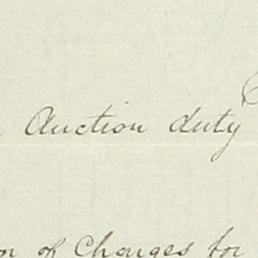 Auction duty
of Charges for